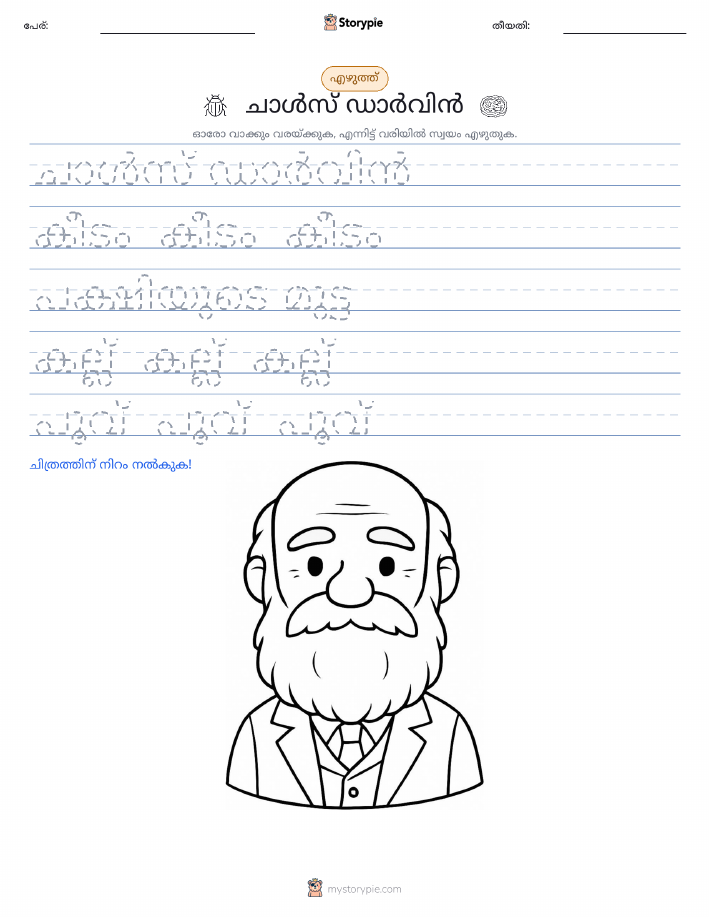 പേര്:
Storypie
തീയതി:
എഴുത്ത്
ചാൾസ് ഡാർവിൻ
ഓരോ വാക്കും വരയ്ക്കുക, എന്നിട്ട് വരിയിൽ സ്വയം എഴുതുക.
ചാൾസ് ഡാർവിൻ
കീടം കീടം കീടം
പക്ഷിയുടെ മുട്ട
കല്ല് കല്ല് കല്ല്
പൂവ് പൂവ് പൂവ്
ചിത്രത്തിന് നിറം നൽകുക!
mystorypie.com